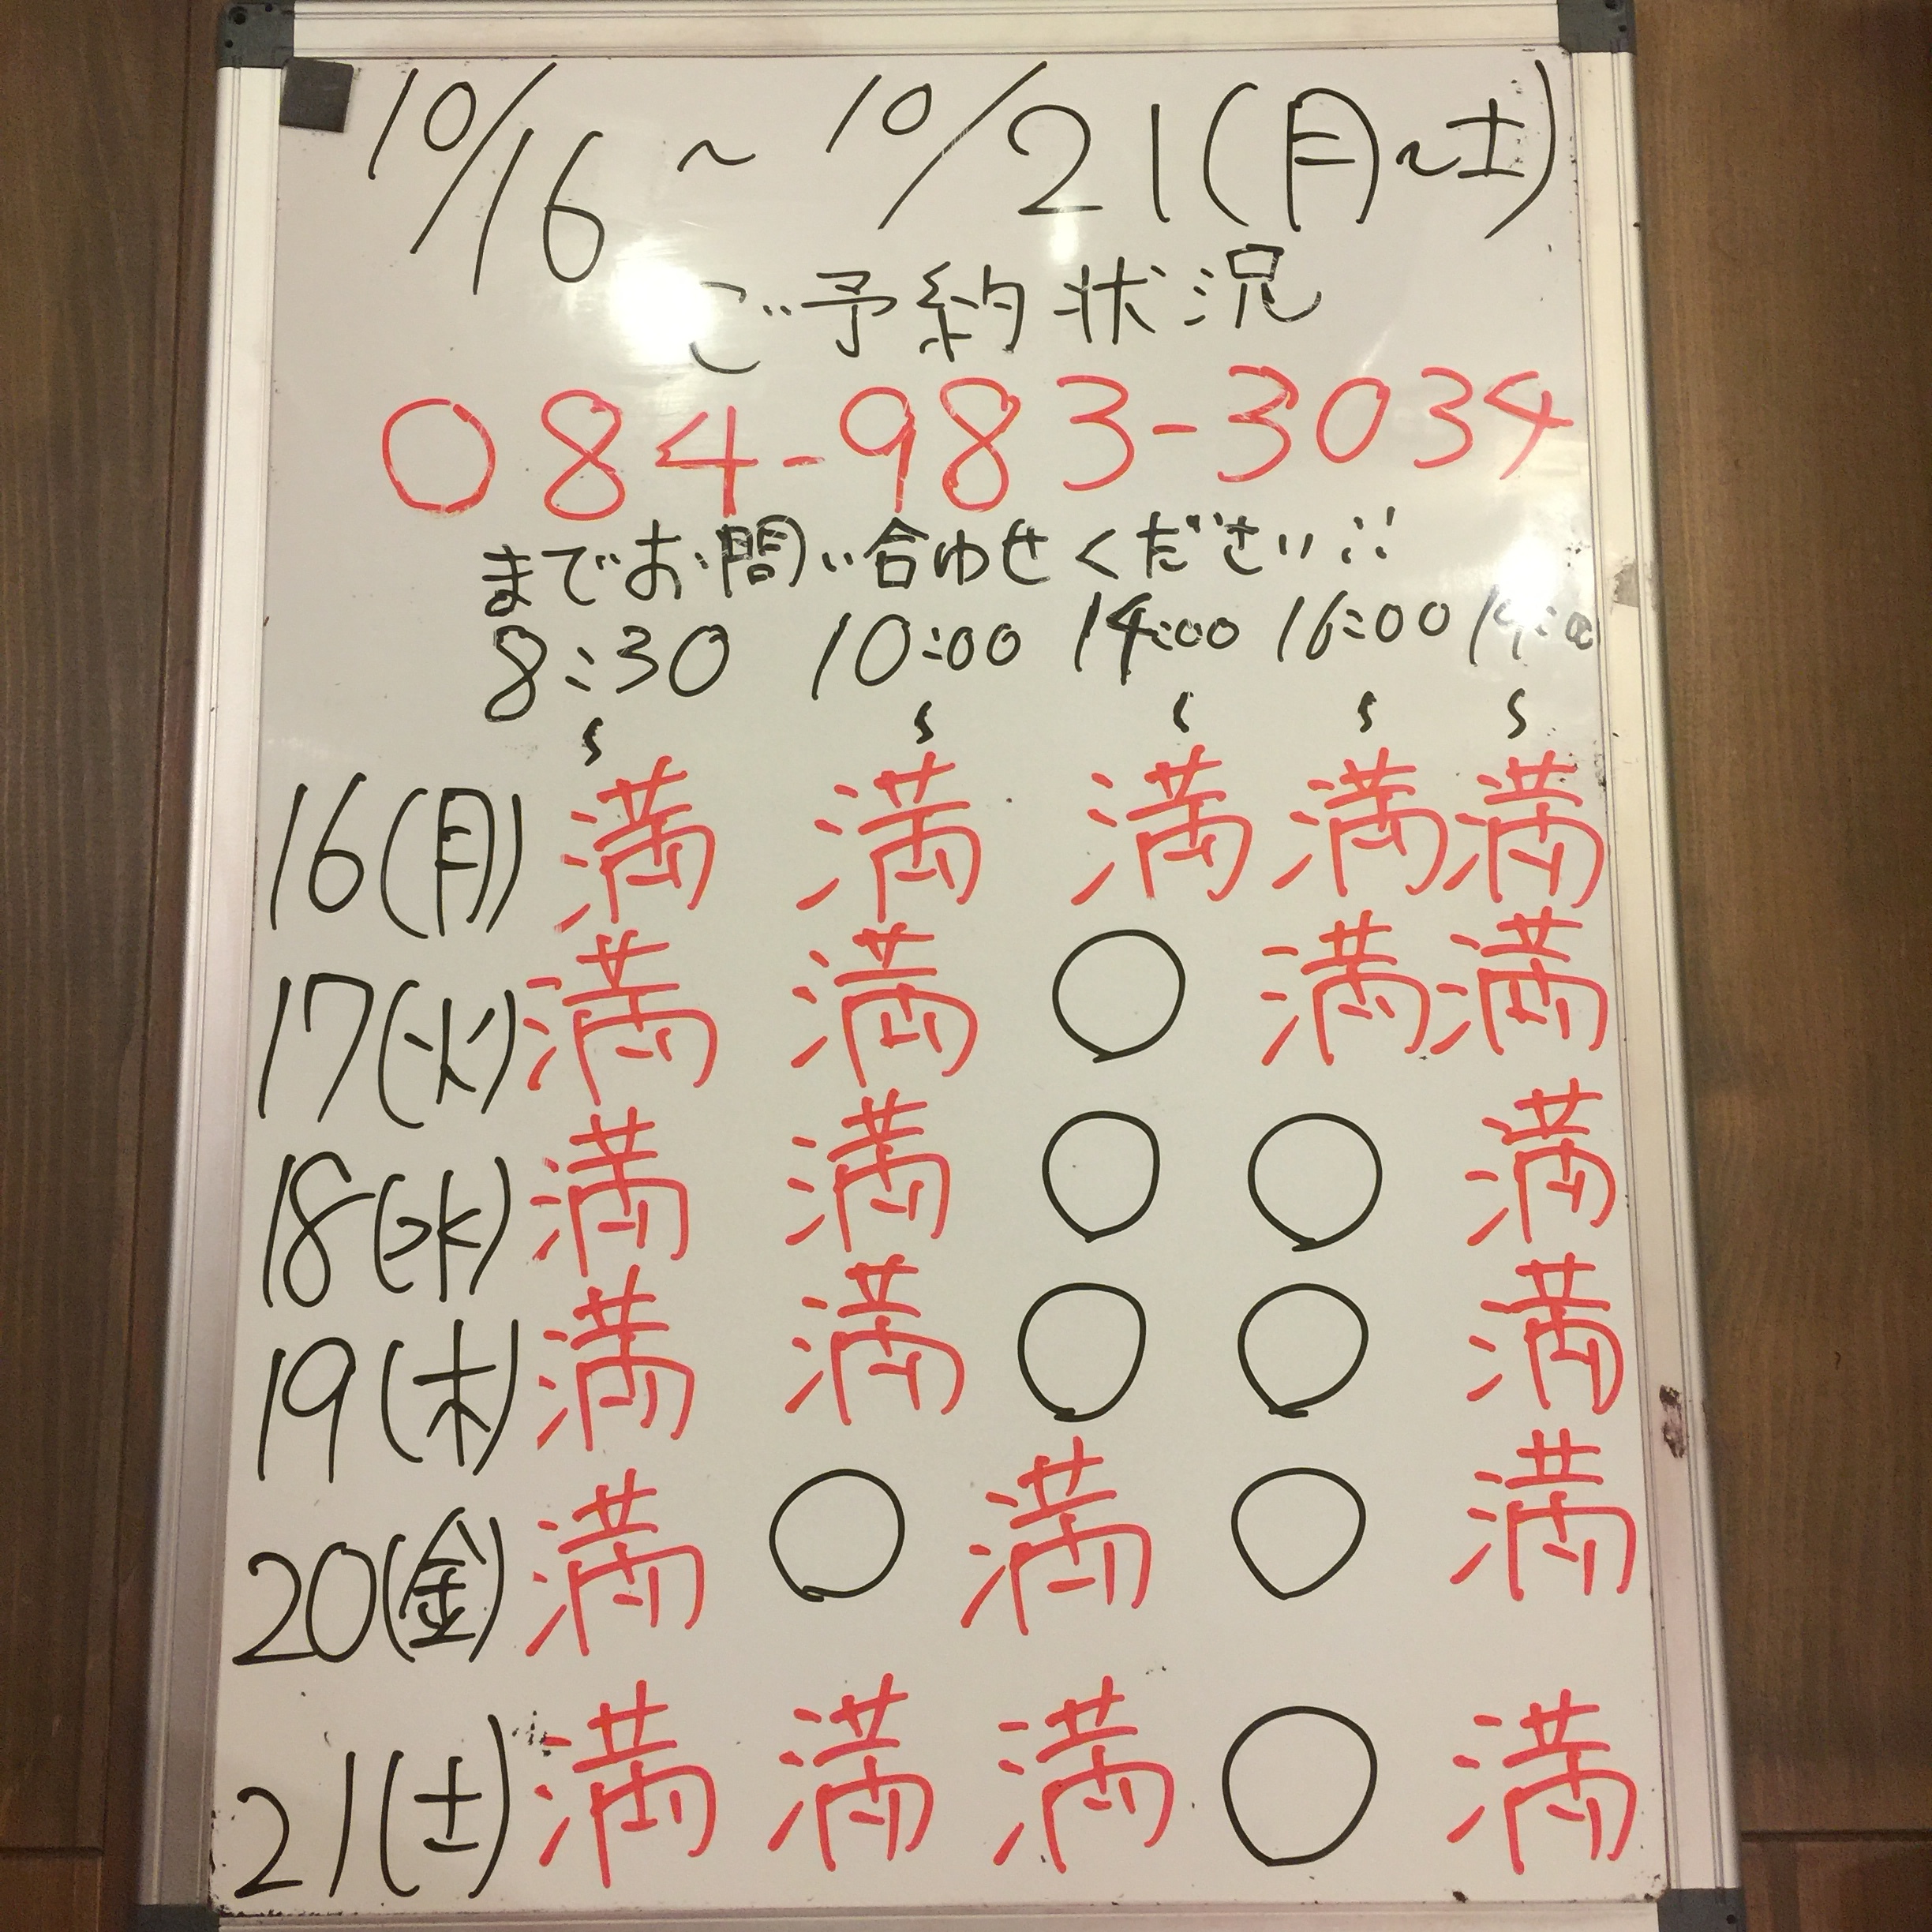 10/16 ~ 10/21(月~土)
ご予約状況
084-983-3034
までお問い合わせください!!
8:30 10:00 14:00 16:00
〜 〜 〜 〜 〜
16(月) 満 満 満 満 満
17(火) 満 満 ○ 満 満
18(水) 満 満 ○ ○ 満
19(木) 満 満 ○ ○ 満
20(金) 満 ○ 満 ○ 満
21(土) 満 満 満 ○ 満